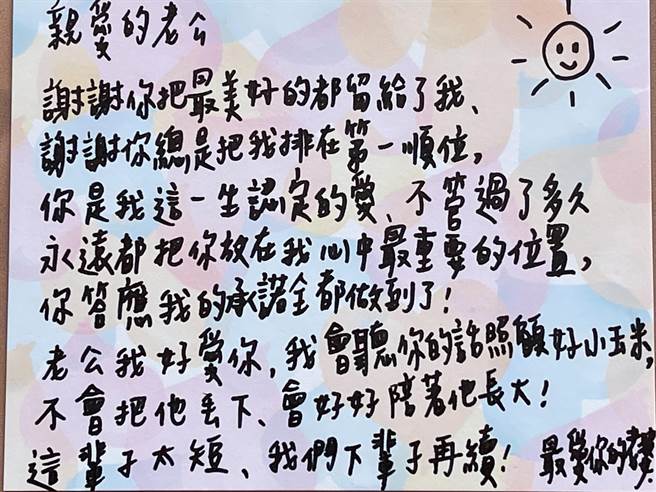 親愛的老公
謝謝你把最美好的都留給了我、
謝謝你總是把我排在第一順位，
你是我這一生認定的愛、不管過了多久
永遠都把你放在我心中最重要的位置，
你答應我的承諾全都做到了！
老公我好愛你，我會聽你的話照顧好小玉米，
不會把他丟下、會好好陪著他長大！
這輩子太短、我們下輩子再續！ 最愛你的老婆.